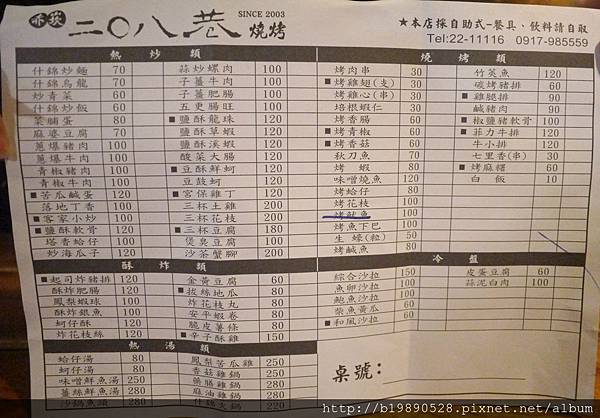 赤崁 二〇八巷 SINCE 2003 燒烤
★本店採自助式-餐具、飲料請自取
Tel:22-11116 0917-985559
熱炒類
什錦炒麵 70
什錦烏龍 70
炒青菜 60
什錦炒飯 60
菜脯蛋 80
麻婆豆腐 70
蔥爆豬肉 100
蔥爆牛肉 100
青椒豬肉 100
青椒牛肉 100
■苦瓜鹹蛋 120
落地丁香 100
■客家小炒 100
■鹽酥軟骨 120
塔香蛤仔 100
炒海瓜子 120
蒜炒螺肉 100
子薑牛肉 100
子薑肥腸 100
五更腸旺 100
■鹽酥龍珠 120
鹽酥草蝦 120
鹽酥溪蝦 120
酸菜大腸 120
■豆酥鮮蚵 120
豆鼓蚵 120
■宮保雞丁 120
三杯土雞 200
三杯花枝 200
■三杯豆腐 180
煲臭豆腐 100
沙茶蟹腳 200
酥炸類
■起司炸豬排 120
酥炸肥腸 120
鳳梨蝦球 100
酥炸銀魚 100
蚵仔酥 120
炸花枝丸 120
金黃豆腐 60
■拔絲地瓜 80
炸花枝丸 80
安平蝦卷 80
脆皮薯條 80
■辛子酥雞 150
熱湯類
蛤仔湯 80
蚵仔湯 80
味噌鮮魚湯 250
薑絲鮮魚湯 250
沙鍋魚頭 280
鳳梨苦瓜雞 250
香菇雞鍋 250
藥膳雞鍋 280
麻油雞鍋 280
燒烤類
烤肉串 30
■烤雞翅(支) 30
烤雞心(串) 30
培根蝦仁 30
烤香腸 60
■烤青椒 60
■烤香菇 60
秋刀魚 70
烤蝦 80
味噌燒魚 120
烤蛤仔 80
烤花枝 100
烤魷魚 100
烤魚下巴 100
生蠔(粒) 50
烤鹹魚 80
竹筴魚 120
碳烤豬排 60
■雞腿排 90
鹹豬肉 90
■椒鹽豬軟骨 100
■菲力牛排 100
牛小排 120
七里香(串) 30
■烤麻糬 60
白飯 10
冷盤
綜合沙拉 150
魚卵沙拉 100
鮑魚沙拉 100
柴魚黃瓜 60
■和風沙拉 100
皮蛋豆腐 60
蒜泥白肉 100
桌號：
http://b19890528.pixnet.net/album